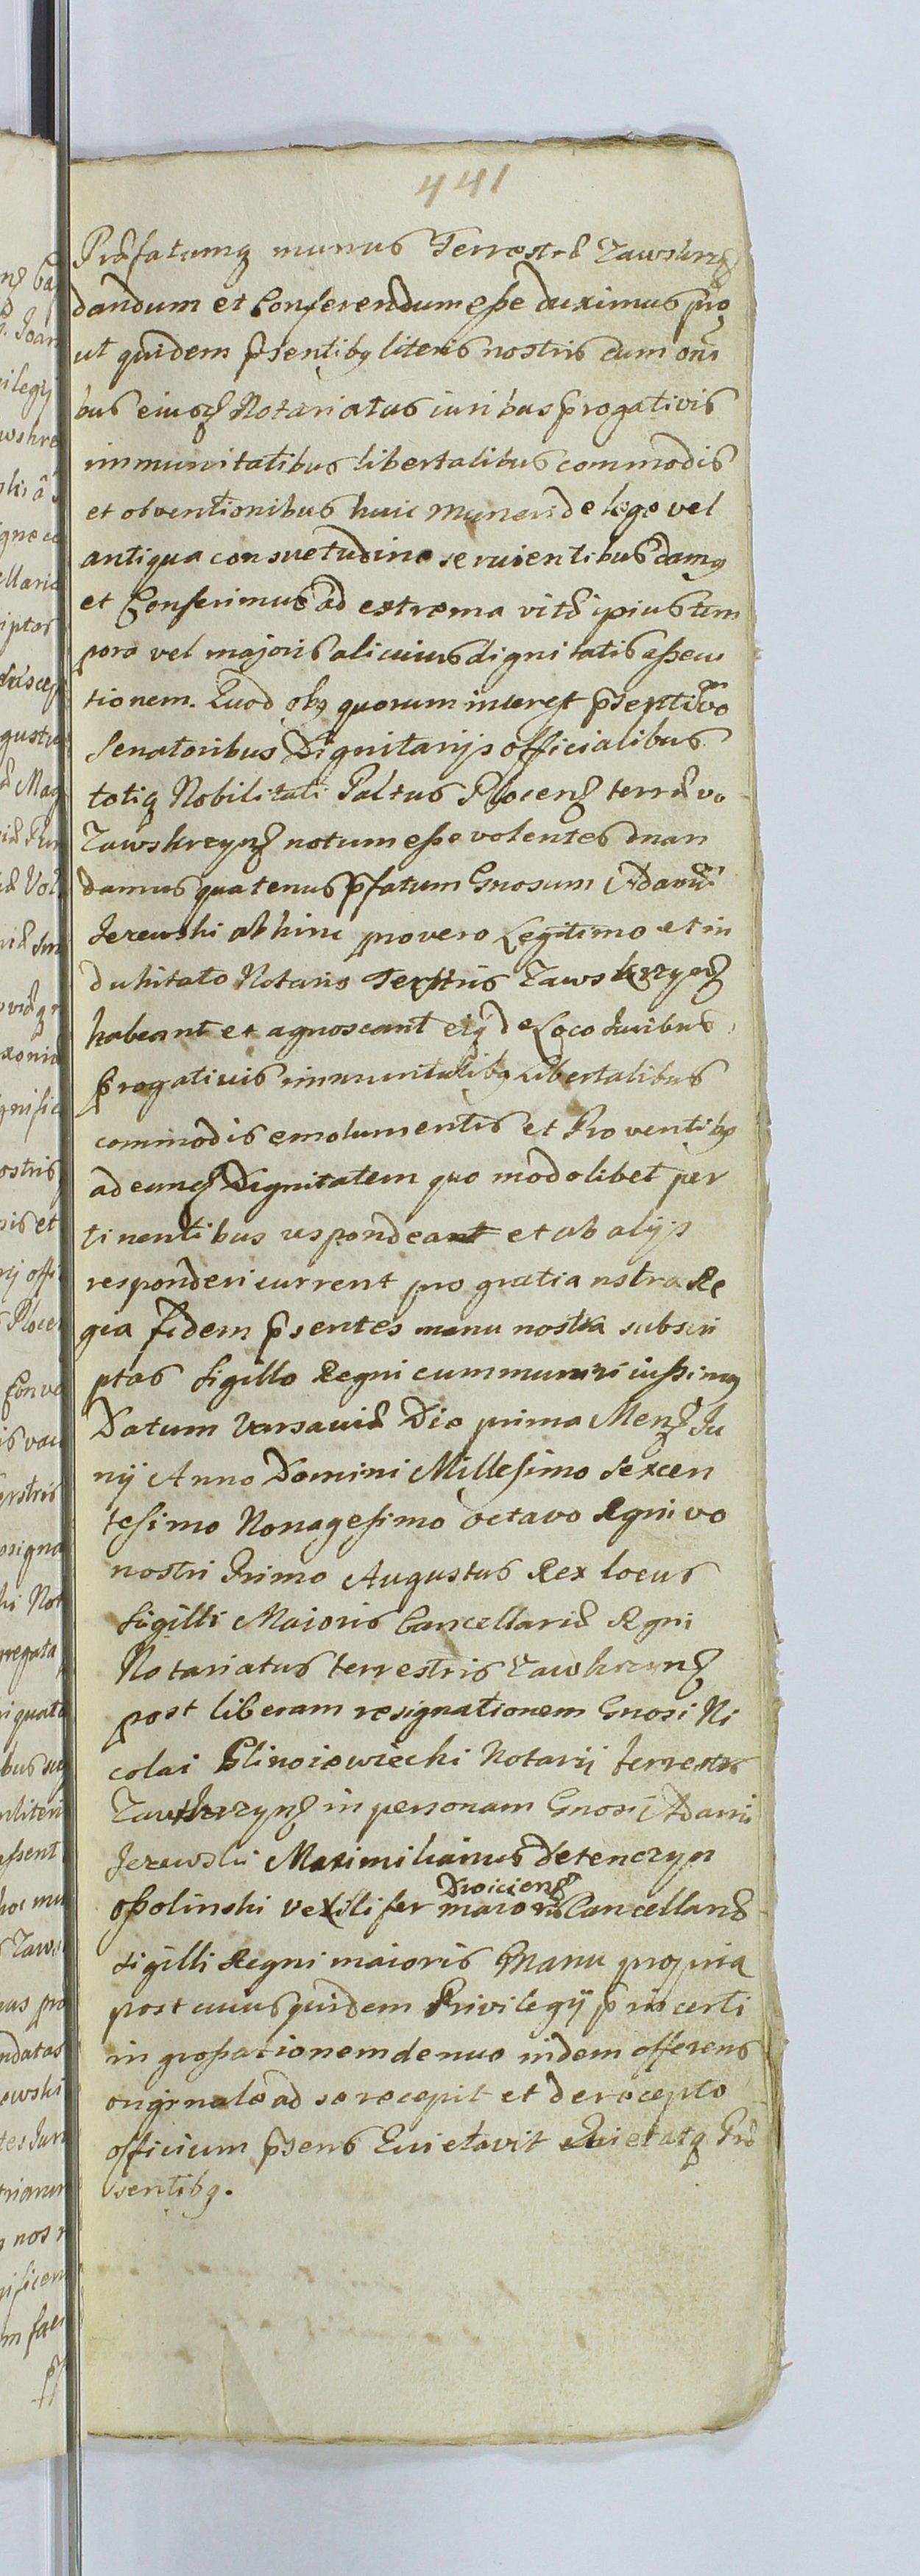 441
Præfatumq munus Terrestre Zawskrzę
dandum et Conferendum eße duximus pro
ut quidem pſentibq literis nostris cum omi
bus eiusq Notariatus iuribus progativis
immunitatibus libertatibus commodis
et obventionibus huic muneri de lege vel
antiqua consuetudine servientibus damq
et Conferimus ad extrema vitæ ipius tem
pora vel majoris alicuius dignitatis aßecu
tionem. Quod obq quorum interest psentibq vo
Senatoribus Dignitarijs officialibus
totiq Nobilitati Paltus Plocenq terræ vo
Zawskrzynq notum eße volentes man
damus quatenus pfatum Gnosum Adamũ
Jezewski abhinc pro vero Legitimo et in
dubitato Notario Terstris Zawskrzynq
habeant et agnoscant eiq de Loco Iuribus,
progativis immunitatibq Libertatibus
commodis emolumentis et Proventibq
ad eamq Dignitatem quo modolibet per
tinentibus respondeant et ab alijs
responderi current pro gratia nstra Re
gia fidem psentes manu nostra subscri
ptas Sigillo Regni cummuniri iußimq
Datum Varsaviæ Die prima Menq Ju
nij Anno Domini Millesimo Sexcen
tesimo Nonagesimo octavo Regni vo
nostri Primo Augustus Rex locus
Sigilli Maioris Cancellariæ Regni
Notariatus terrestris Zawkrzynq
post liberam resignationem Gnosi Ni
colai Glinoiewiecki Notarij terrestris
Zawskrzynq in personam Gnosi Adami
Jezewski Maximilianus de tenczyn
Drohicienq
oßolinski vexilifer maioris Cancellariæ
sigilli Regni maioris Manu propria
post cuius quidem Privilegij p inserti
in großationem denuo iidem offerens
originale ad se recepit et de recepto
officium psens Quietavit Quietatq Præ
sentibq.